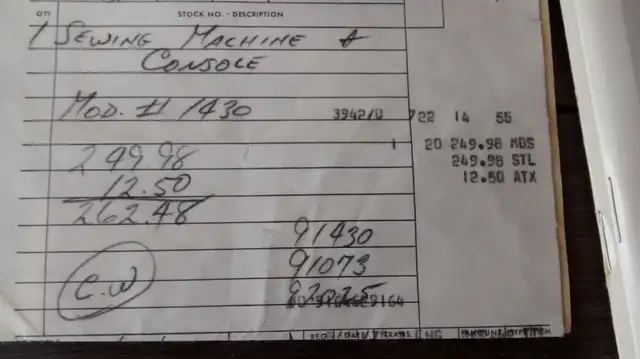 QTY STOCK NO. - DESCRIPTION
1 SEWING MACHINE &
CONSOLE
MOD. # 1430
3942/0 722 14 55
1 20 249.98 MDS
249.98
249.98 STL
12.50
12.50 ATX
262.48
91430
91073
C.W